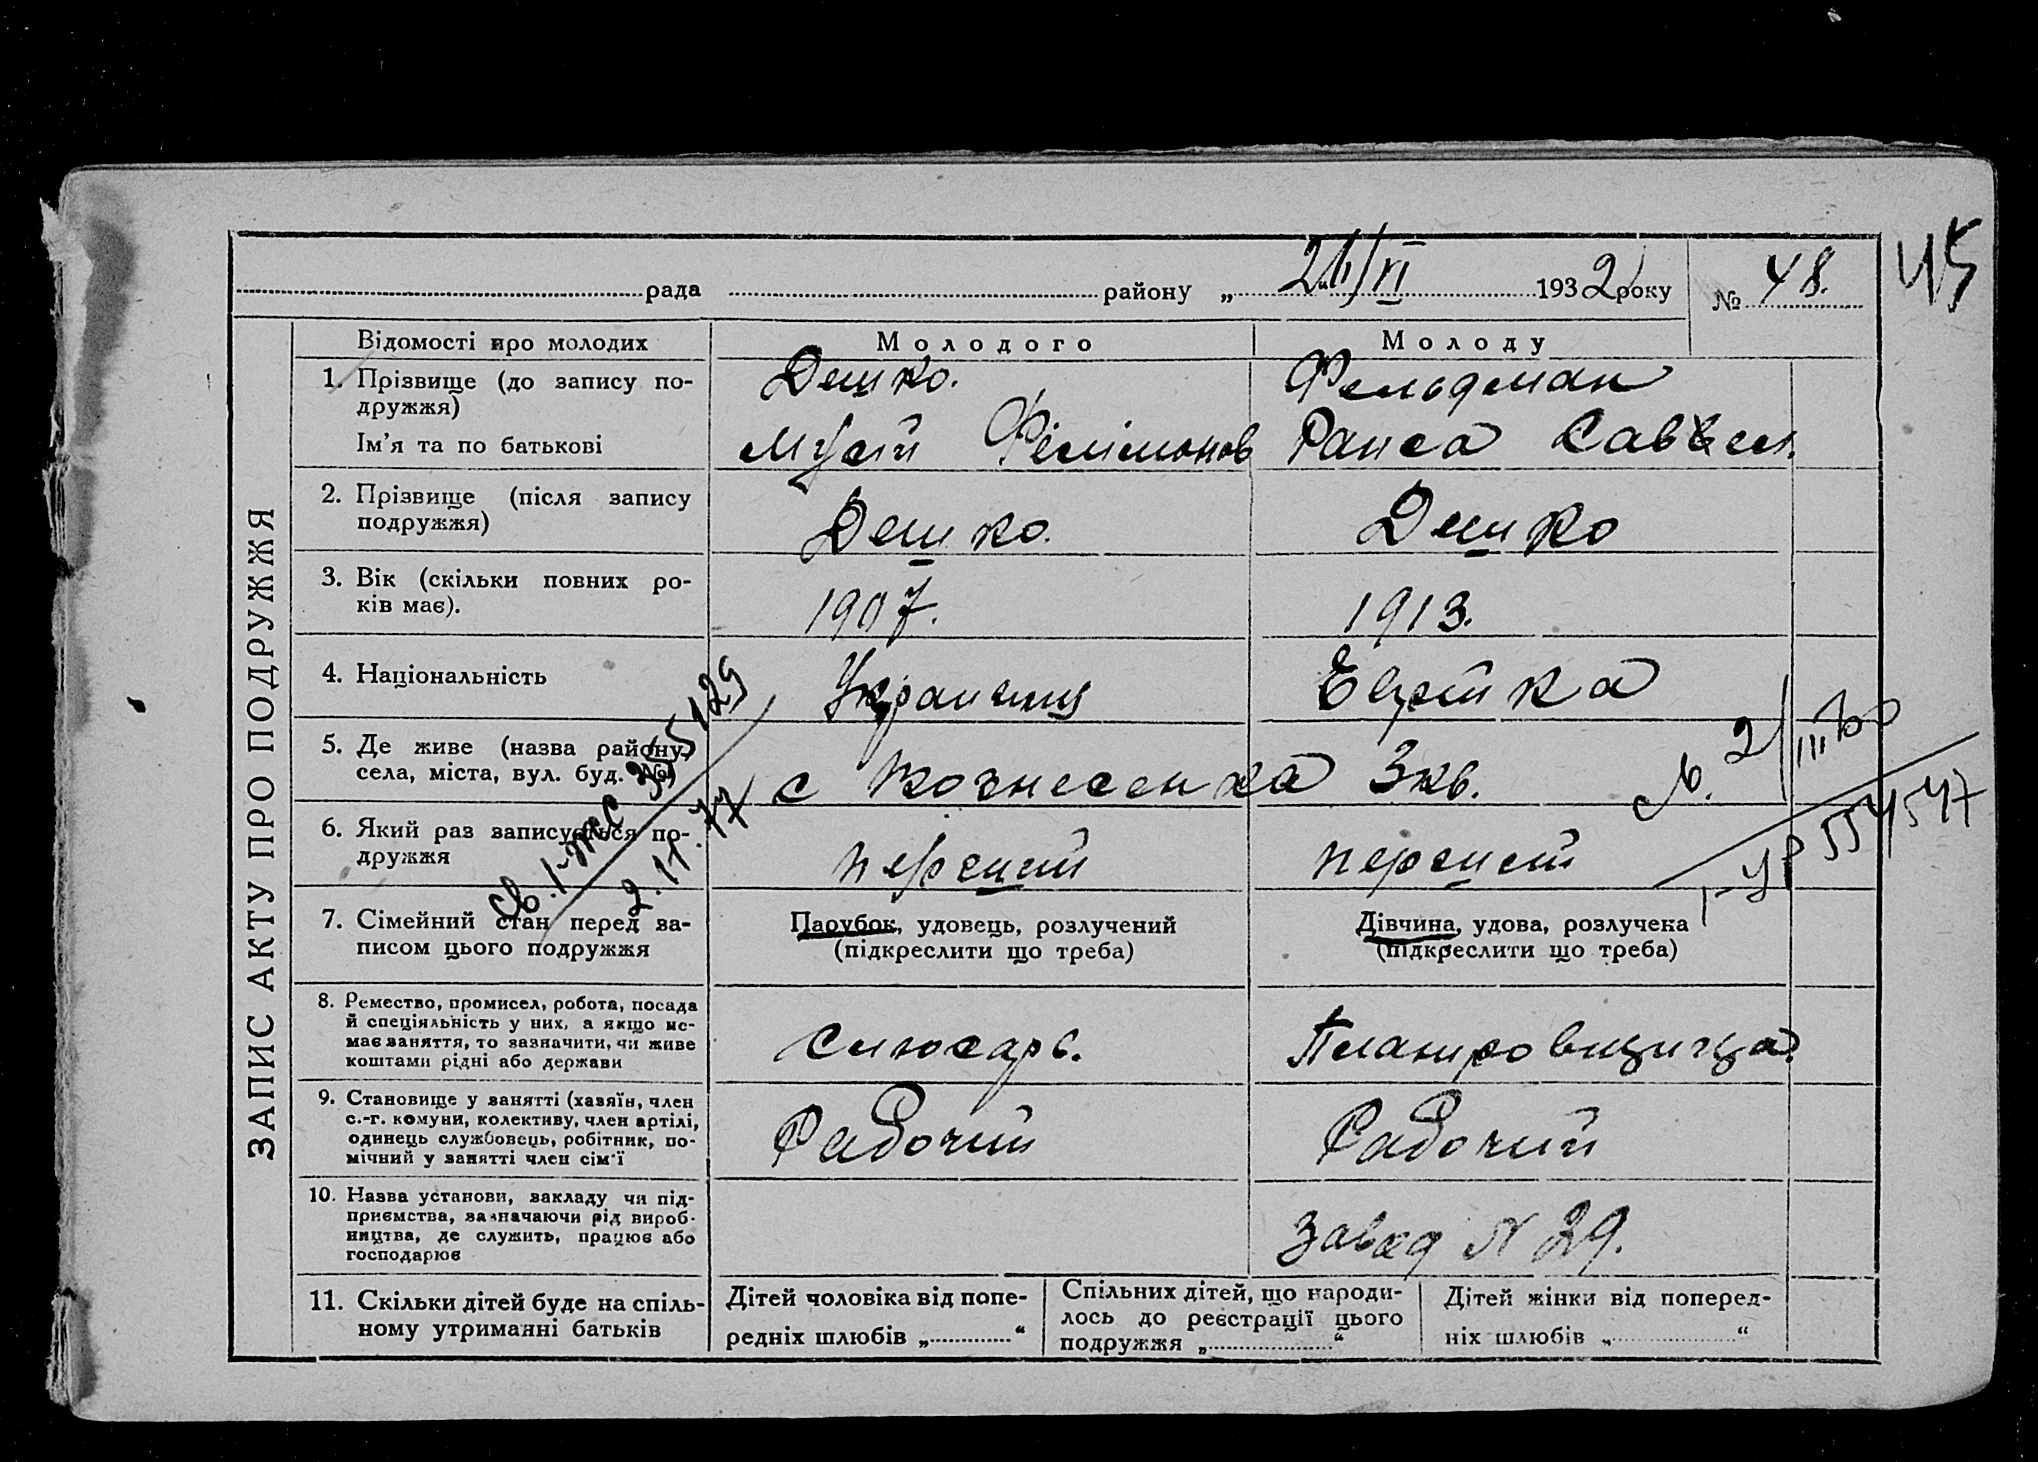 45
рада району „ 1932 року № 48.
ЗАПИС АКТУ ПРО ПОДРУЖЖЯ
Відомості про молодих Молодого Молоду
1. Прізвище (до запису по-
дружжя)
Дешко. Фельдман
Ім'я та по батькові
Мусій Філімонов Раиса Савел.
2. Прізвище (після запису
подружжя)
Дешко. Дешко
3. Вік (скільки повних ро-
ків має).
1907. 1913.
4. Національність
Украинец Еврейка
5. Де живе (назва району,
села, міста, вул. буд. №)
с Вознесенка 3 кв.
6. Який раз записується по-
дружжя
перший перший
7. Сімейний стан перед за-
писом цього подружжя
Парубок, удовець, розлучений
(підкреслити що треба)
Дівчина, удова, розлучена
(підкреслити що треба)
8. Ремество, промисел, робота, посада
й спеціяльність у них, а якщо не-
має заняття, то зазначити, чи живе
коштами рідні або держави
Слюсарь. Планировщица.
9. Становище у занятті (хазяїн, член
с.-г. комуни, колективу, член артілі,
одинець службовець, робітник, по-
мічний у занятті член сім'ї
Рабочий Рабочий
10. Назва установи, закладу чи під-
приємства, зазначаючи рід вироб-
ництва, де служить, працює або
господарює
Завод N 29.
11. Скільки дітей буде на спіль-
ному утриманні батьків
Дітей чоловіка від попе-
редніх шлюбів „ “
Спільних дітей, що народи-
лось до реєстрації цього
подружжя „ “
Дітей жінки від поперед-
ніх шлюбів „ “
св. 1-ЖС 355129
2.11.77
1-УР 554547